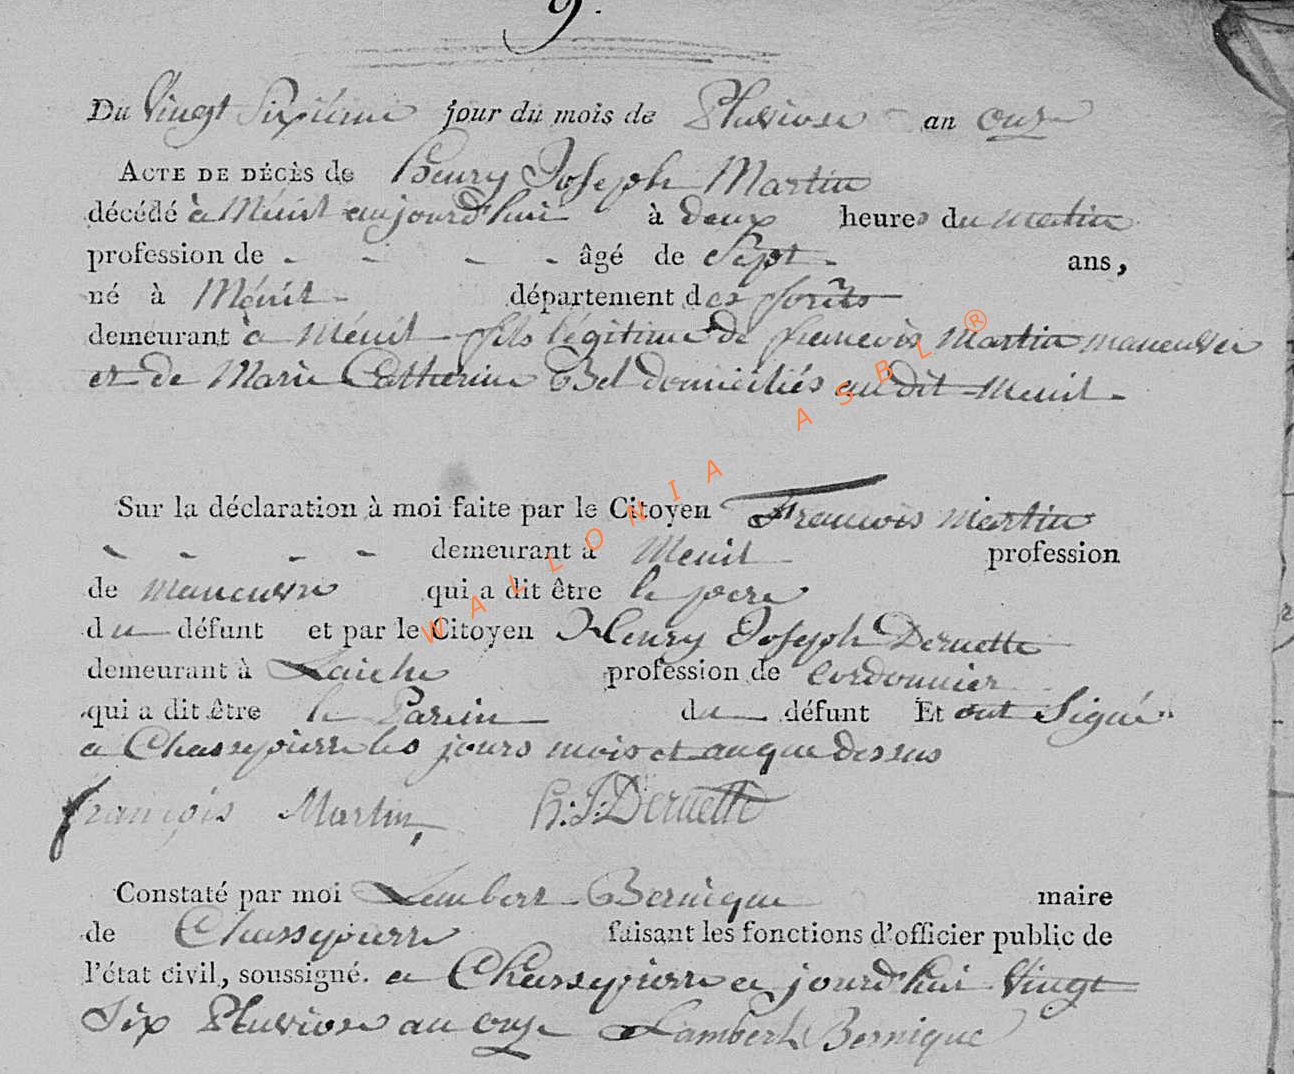 9.
Du Vingt Sixième jour du mois de Pluviose an onze
ACTE DE DÉCÈS de henry Joseph Martin
décédé à Ménil aujourd'hui à deux heures du matin
profession de - - - - âgé de Sept - ans,
né à Ménil - département des forêts
demeurant à Ménil fils légitime de francois Martin maneuvre
et de Marie Catherine Bel domiciliés au dit Menil -
Sur la déclaration à moi faite par le Citoyen Francois Martin
- - - - demeurant à Menil profession
de maneuvre qui a dit être le pere
du défunt et par le Citoyen Henry Joseph Deruette
demeurant à Laiche profession de Cordonnier
qui a dit être le Parin du défunt Et ont Signé
a Chassepierre les jours mois et an que dessus
françois Martin h: J: Deruette
Constaté par moi Lambert Bernique maire
de Chassepierre faisant les fonctions d'officier public de
l'état civil, soussigné. a Chassepierre ce jourd'hui Vingt
Six Pluviose an onze Lambert Bernique
WALLONIA ASBL ®